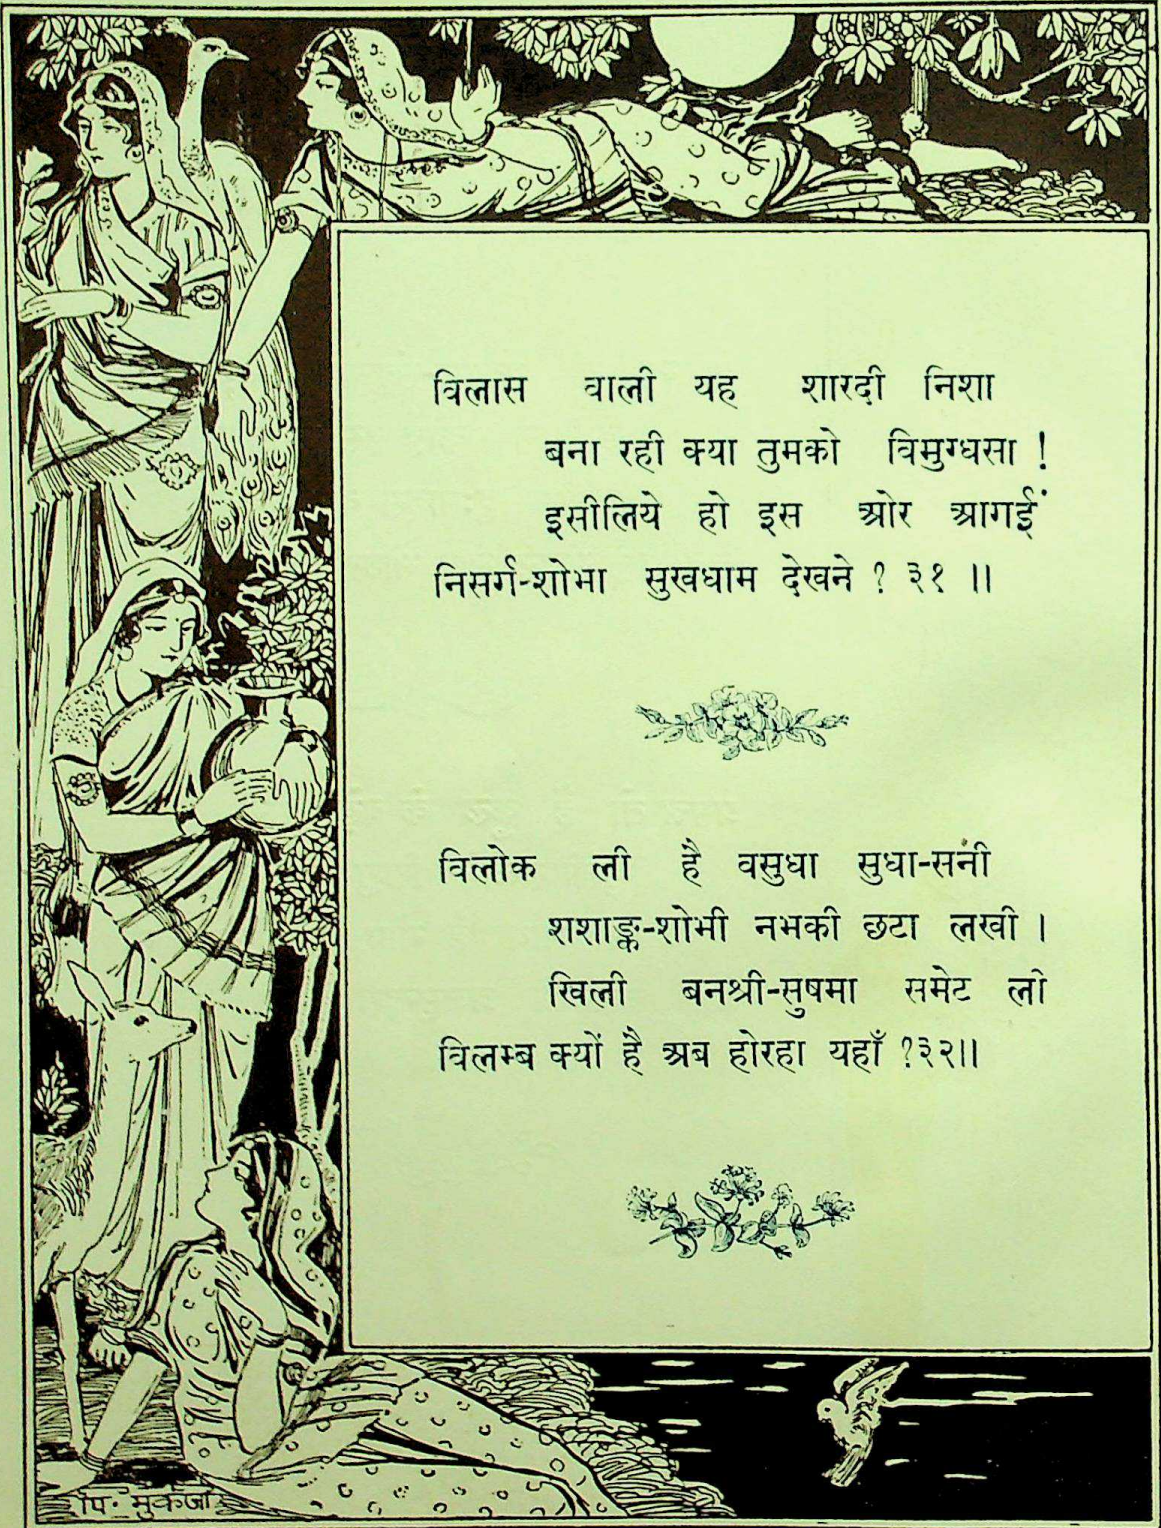 विलास वाली यह शारदी निशा
बना रही क्या तुमको विमुग्धसा !
इसीलिये हो इस ओर आगईं
निसर्ग-शोभा सुखधाम देखने ? ३१ ॥
विलोक ली है वसुधा सुधा-सनी
शशाङ्क-शोभी नभकी छटा लखी ।
खिली बनश्री-सुषमा समेट लो
विलम्ब क्यों है अब होरहा यहाँ ?३२॥
पि. मुकर्जी